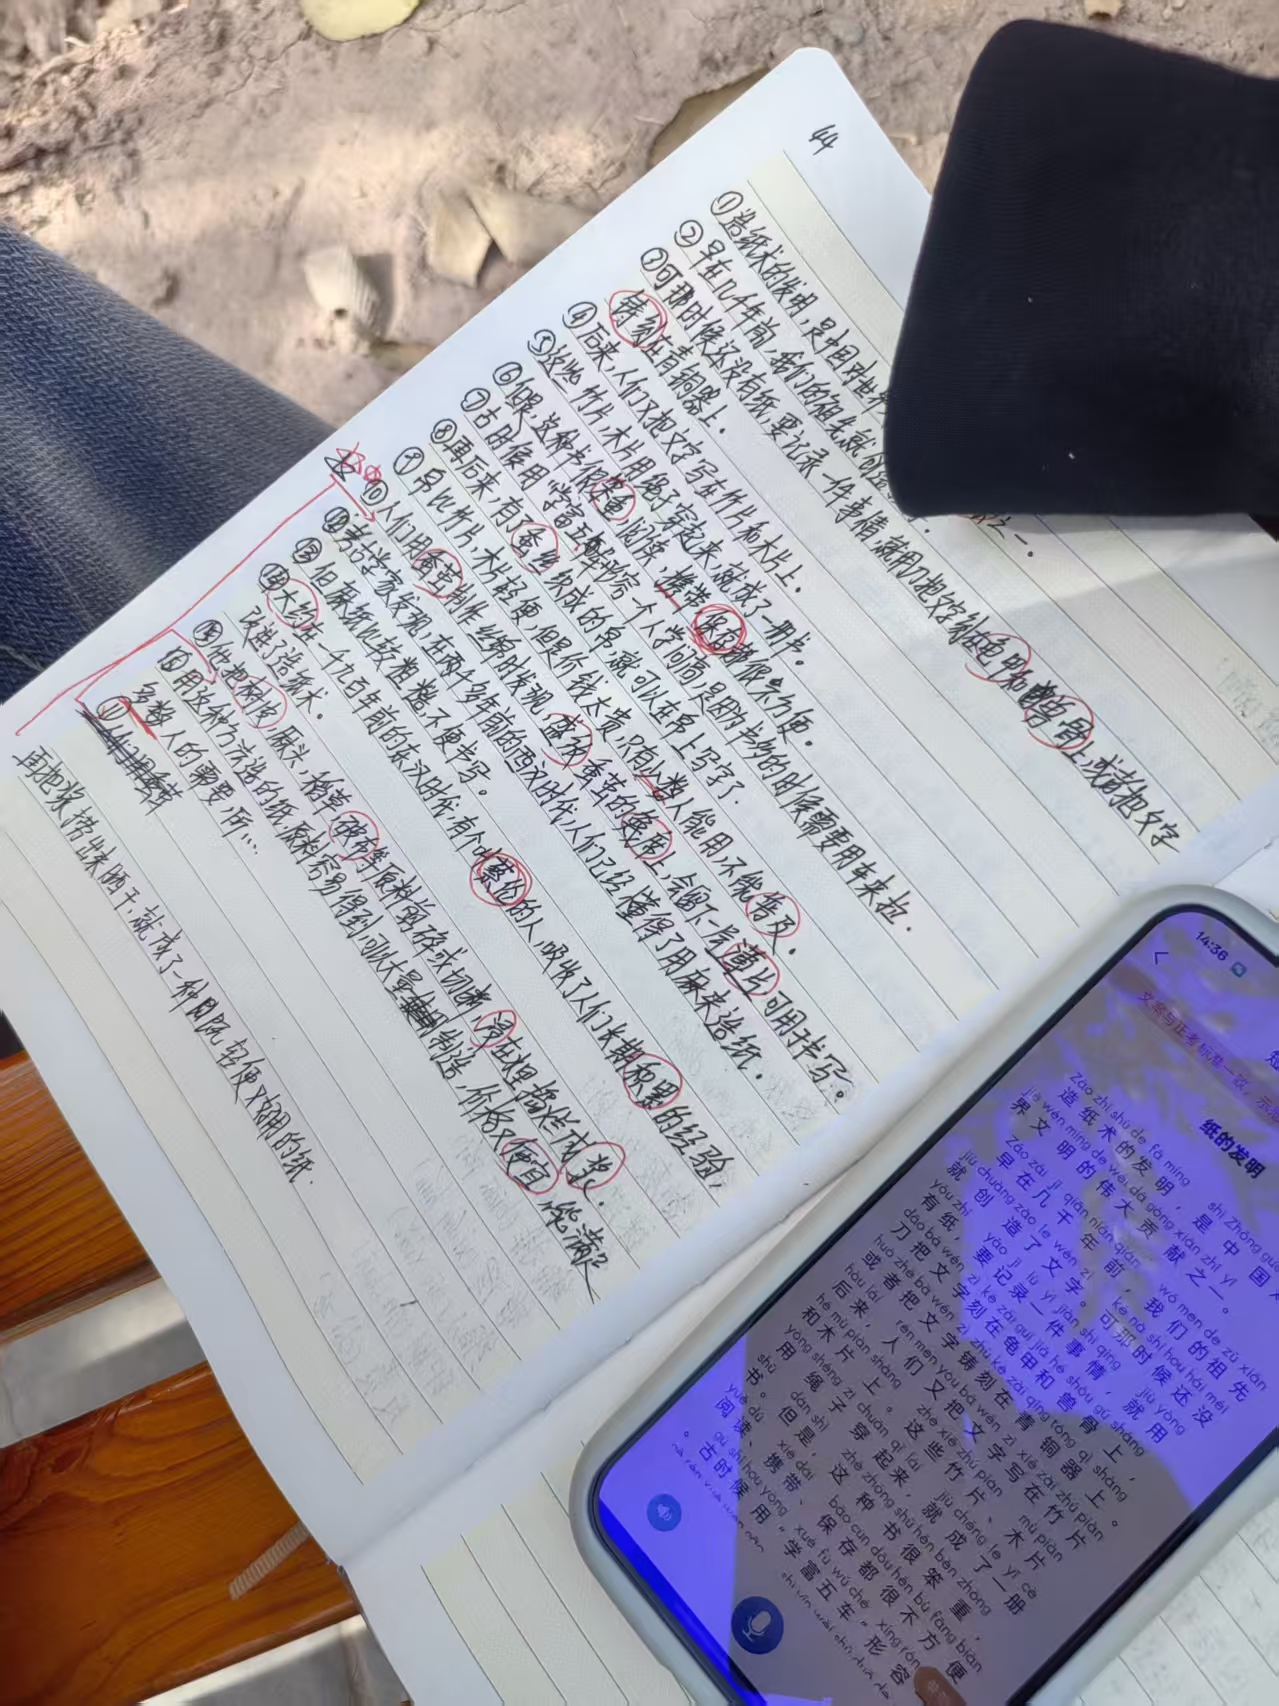 44
①造纸术的发明,是中国对世界
之一.
②早在几千年前,我们的祖先就创造
③可那时候还没有纸,要记录一件事情,就用刀把文字刻在龟甲和兽骨上,或者把文字
铸刻在青铜器上.
④后来,人们又把文字写在竹片和木片上.
⑤这些竹片,木片用绳子穿起来,就成了一册书.
⑥但是,这种书很笨重,阅读,携带,保存都很不方便.
⑦古时候用"学富五车"形容一个人学问高,是因为书多的时候需要用车来拉.
⑧再后来,有了蚕丝织成的帛,就可以在帛上写字了.
⑨帛比竹片,木片轻便,但是价钱太贵,只有少数人能用,不能普及.
⑩人们用蚕茧制作丝绵时发现,盛放蚕茧的篾席上,会留下一层薄片,可用于书写。
⑫考古学家发现,在两千多年前的西汉时代,人们已经懂得了用麻来造纸.
⑬但麻纸比较粗糙,不便书写.
⑭大约在一千九百年前的东汉时代,有个叫蔡伦的人,吸收了人们长期积累的经验,
改进了造纸术.
⑮他把树皮,麻头,稻草,破布等原料剪碎或切断,浸在水里捣烂成浆.
⑯用这种方法造的纸,原料容易得到,可以大量制造,价格又便宜,能满足
多数人的需要,所...
再把浆捞出来晒干,就成了一种既轻便又好用的纸.
14:36
纸的发明
zào zhǐ shù de fā míng shì zhōng guó
造纸术的发明,是中国
jiè wén míng de wěi dà gòng xiàn zhī yī
界文明的伟大贡献之一。
zǎo zài jǐ qiān nián qián wǒ men de zǔ xiān
早在几千年前,我们的祖先
jiù chuàng zào le wén zì kě nà shí hou hái méi
就创造了文字。可那时候还没
yǒu zhǐ yào jì lù yī jiàn shì qing jiù yòng
有纸,要记录一件事情,就用
dāo bǎ wén zì kè zài guī jiǎ hé shòu gǔ shàng
刀把文字刻在龟甲和兽骨上,
huò zhě bǎ wén zì zhù kè zài qīng tóng qì shàng
或者把文字铸刻在青铜器上。
hòu lái rén men yòu bǎ wén zì xiě zài zhú piàn
后来,人们又把文字写在竹片
hé mù piàn shàng zhè xiē zhú piàn mù piàn
和木片上。这些竹片、木片
yòng shéng zi chuān qǐ lái jiù chéng le yī cè
用绳子穿起来,就成了一册
shū dàn shì zhè zhǒng shū hěn bèn zhòng
书。但是,这种书很笨重,
yuè dú xié dài bǎo cún dōu hěn bù fāng biàn
阅读、携带、保存都很不方便
gǔ shí hou yòng xué fù wǔ chē xíng róng
。古时候用"学富五车"形容